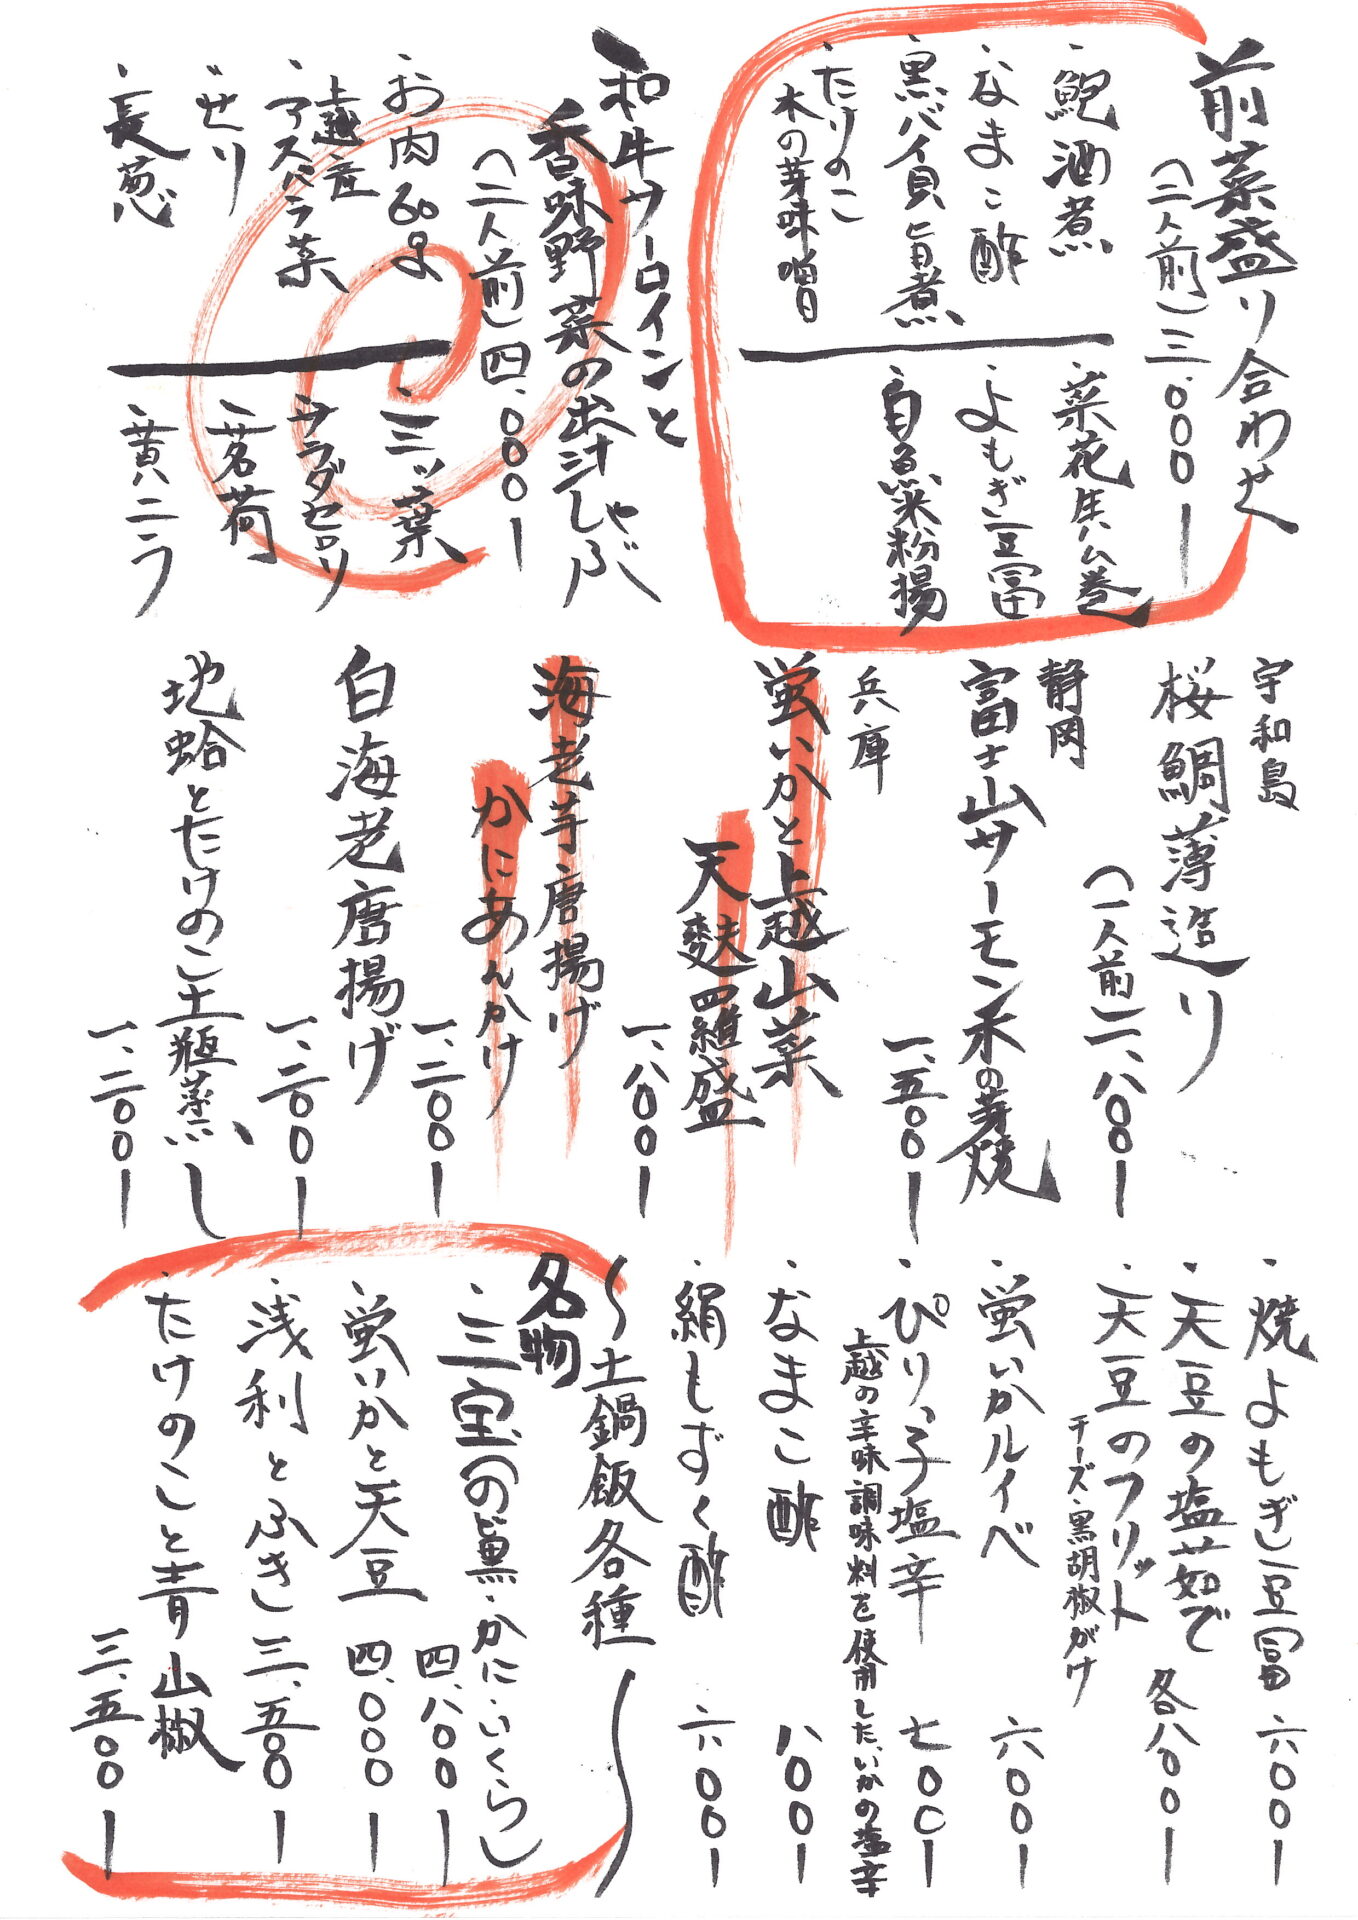 前菜盛り合わせ
(二人前)三、〇〇〇ー
・鮑酒煮
・なまこ酢
・黒バイ貝旨煮
・たけのこ
木の芽味噌
・菜花生ハム巻
・よもぎ豆富
・白魚米粉揚
和牛サーロインと
香味野菜の出汁しゃぶ
(二人前)四、〇〇〇ー
・お肉60g
上越産
・アスパラ菜
・せり
・長葱
・三ッ葉
・サラダセロリ
・茗荷
・黄ニラ
宇和島
桜鯛薄造り
(一人前)一、八〇〇ー
静岡
富士山サーモン木の芽焼
一、五〇〇ー
兵庫
蛍いかと上越山菜
天麩羅盛
一、八〇〇ー
海老芋唐揚げ
かにあんかけ
一、二〇〇ー
白海老唐揚げ
一、二〇〇ー
地蛤とたけのこ土瓶蒸し
一、二〇〇ー
・焼よもぎ豆富 六〇〇ー
・天豆の塩茹で
・天豆のフリット
チーズ・黒胡椒がけ
各八〇〇ー
・蛍いかルイベ 六〇〇ー
・ぴりっ子塩辛 七〇〇ー
上越の辛味調味料を使用した、いかの塩辛
・なまこ酢 八〇〇ー
・絹もずく酢 六〇〇ー
〜土鍋飯各種〜
名物
・三宝(のど黒・かに・いくら)
四、八〇〇ー
・蛍いかと天豆 四、〇〇〇ー
・浅利とふき 三、五〇〇ー
・たけのこと青山椒
三、五〇〇ー